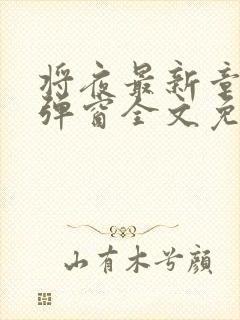 将夜最新章
弹窗全文免
山有木兮颜